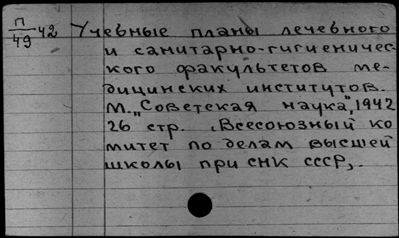 П/49 42 Учебные планы лечебного
и санитарно-гигиеничес-
кого факультетов ме-
дицинских институтов.
М. „Советская наука", 1942
26 стр. (Всесоюзный ко
митет по делам высшей
школы при СНК СССР).